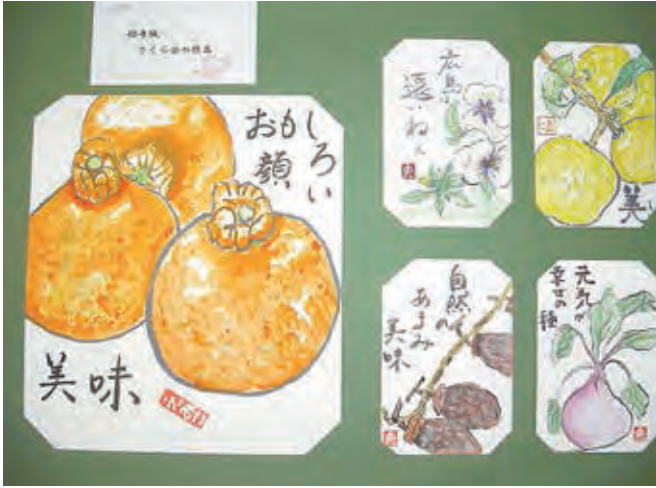 絵手紙
さくら会の作品
おも
しろい
顔
美味
広島
遠いねぇ
自然の
あまみ
美味
元気が
幸せの種